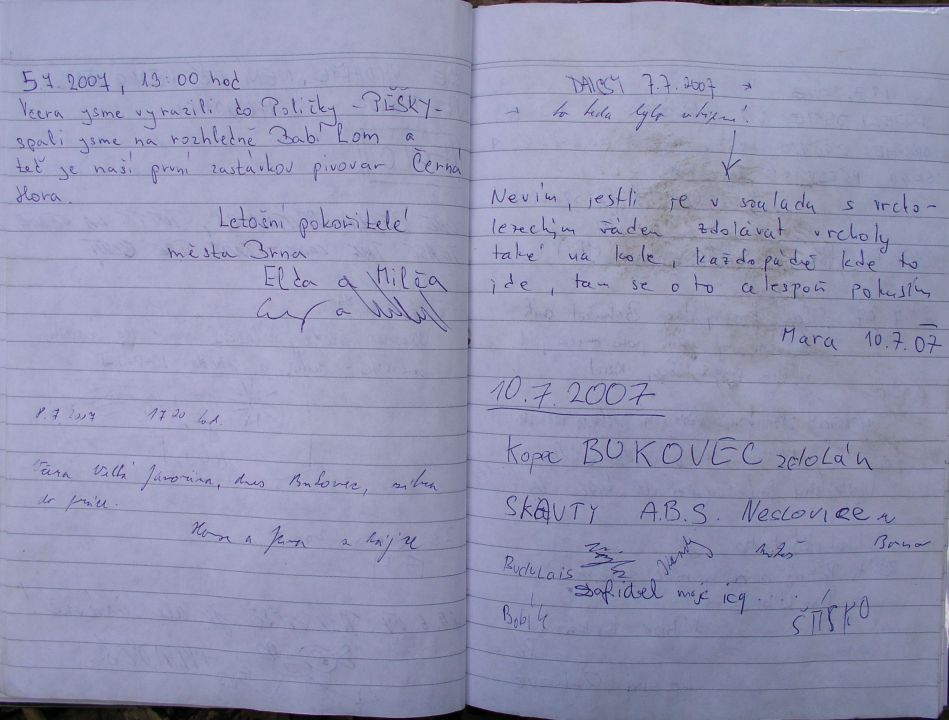 5 7. 2007, 13:00 hod
Včera jsme vyrazili do Poličky - PĚŠKY -
spali jsme na rozhledně Babí Lom a
teč je naší první zastávkou pivovar Černá
Hora.
Letošní pokořitelé
města Brna
Elda a Milča
a
8.7.2007 17 20 hod.
Velká Javořina, dnes Bukovec, zítra
do práce.
Hana a Jana z
DAISSY 7.7.2007 →
→ to teda bylo
Nevím, jestli je v souladu s vrcho-
lezeckým řádem zdolávat vrcholy
také na kole, každopádně kde to
jde, tam se o to alespoň pokusím
Mara 10.7.07
10.7.2007
Kopec BUKOVEC zdolán
SKAUTY A.B.S. Neslovice u
Brna
BUDULAIS
zafidel moje icq ....
Bobík ŠTÍSKO